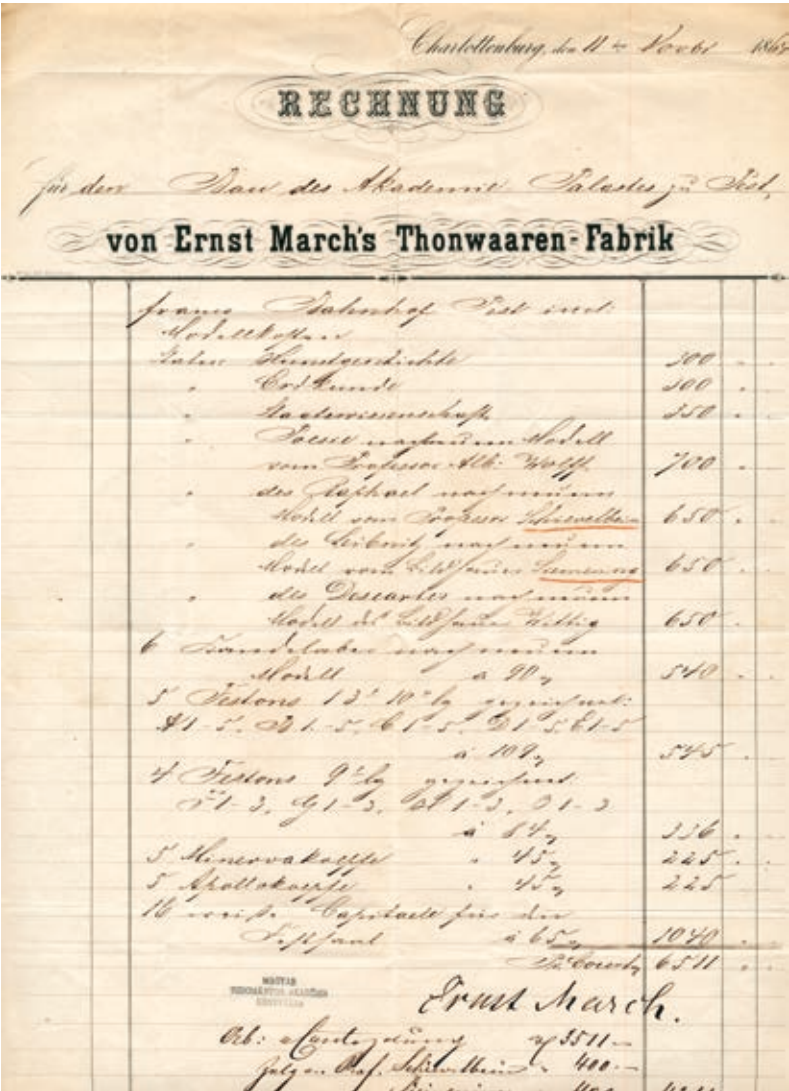 Charlottenburg, den 11 ten Novbr 186
RECHNUNG
für den Bau des Akademie Palastes zu Pest,
von Ernst March's Thonwaaren-Fabrik
franco Bahnhof Pest incl:
Modellkosten
Statue Kunstgeschichte 300
" Erdkunde 300
" Staatswissenschaft 350
" Poesie nach neuem Modell
vom Professor Alb: Wolff 700
" des Raphael nach neuem
Modell vom Professor Schievelbein 650
" des Leibnitz nach neuem
Modell vom Bildhauer 650
" des Descartes nach neuem
Modell des Bildhauer Wittig 650
6 Candelaber nach neuem
Modell a 90 540
5 Festons 13' 10" lg gezeichnet:
A 1-5. B 1-5. C 1-5. D 1-5. E 1-5
à 109 545
4 Festons 9' lg gezeichnet
F 1-3. G 1-3. 1-3. 1-3
à 84 336
5 Minervakoepfe " 45 225
5 Apollokoepfe " 45 225
16 weiße Capitaele für den
Festsaal à 65 1040
6511
MAGYAR
TUDOMÁNYOS AKADÉMIA
KÖNYVTÁRA
Ernst March.
Ab: 3511
Prof. Schievelbein " 400